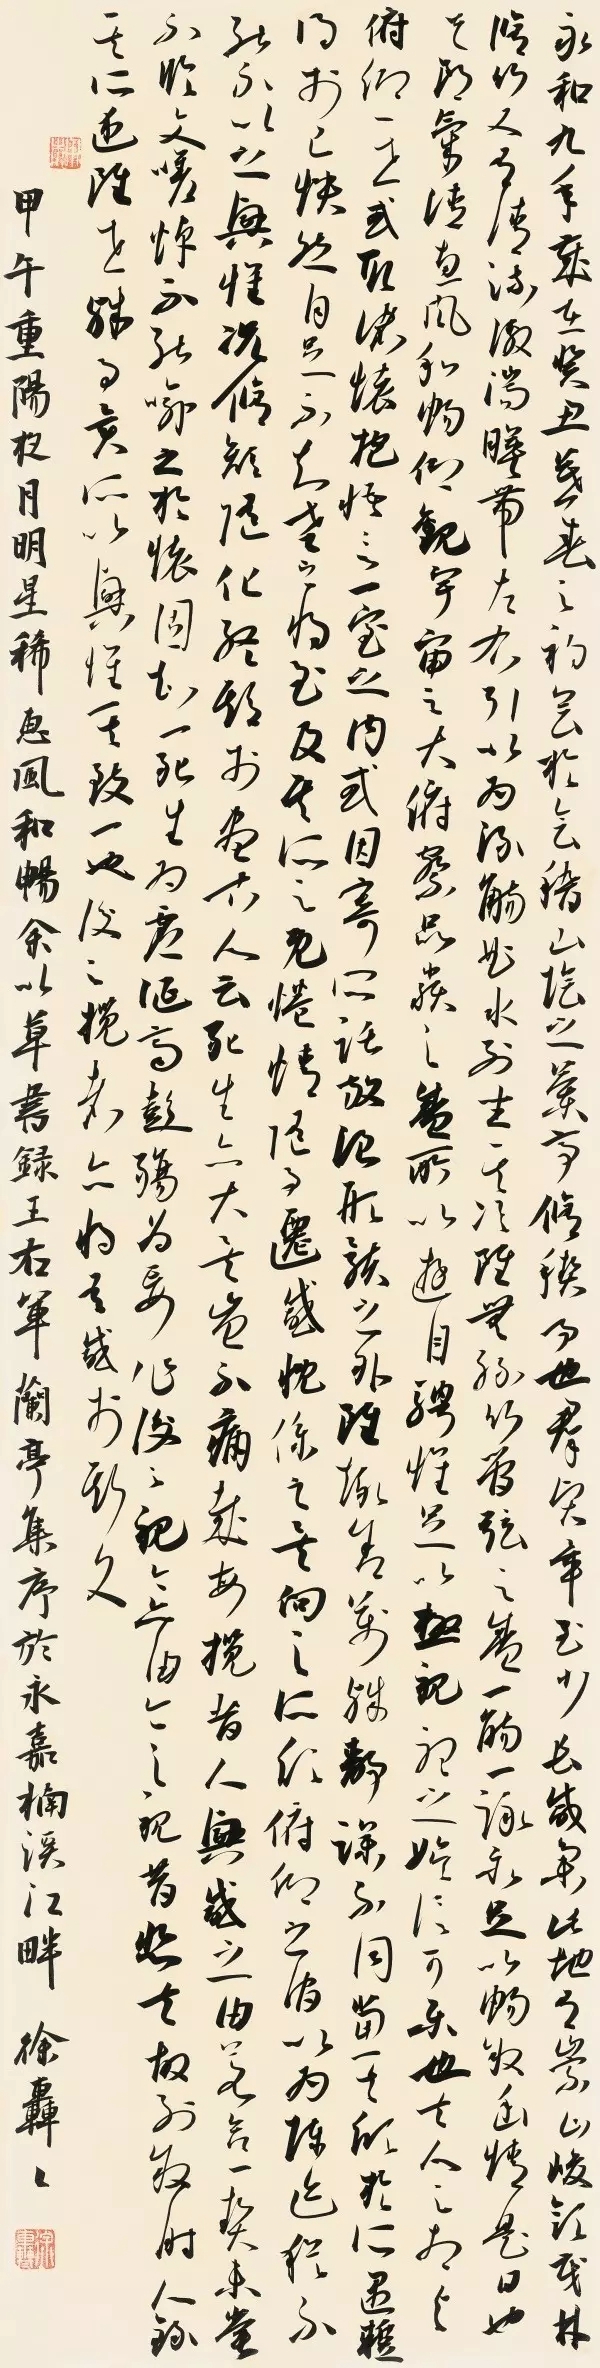 永和九年歲在癸丑暮春之初會於會稽山陰之蘭亭脩禊事也群賢畢至少長咸集此地有崇山峻領茂林
脩竹又有清流激湍暎帶左右引以為流觴曲水列坐其次雖無絲竹管弦之盛一觴一詠亦足以暢敘幽情是日也
天朗氣清惠風和暢仰觀宇宙之大俯察品類之盛所以遊目騁懷足以極視聽之娛信可樂也夫人之相與
俯仰一世或取諸懷抱悟言一室之內或因寄所託放浪形骸之外雖趣舍萬殊靜躁不同當其欣於所遇暫
得於己快然自足不知老之將至及其所之既惓情隨事遷感慨係之矣向之所欣俯仰之間以為陳迹猶不
能不以之興懷況脩短隨化終期於盡古人云死生亦大矣豈不痛哉每攬昔人興感之由若合一契未嘗
不臨文嗟悼不能喻之於懷固知一死生為虛誕齊彭殤為妄作後之視今亦由今之視昔悲夫故列敘時人錄
其所述雖世殊事異所以興懷其致一也後之攬者亦將有感於斯文
甲午重陽夜月明星稀惠風和暢余以草書録王右軍蘭亭集序於永嘉楠溪江畔 徐轟